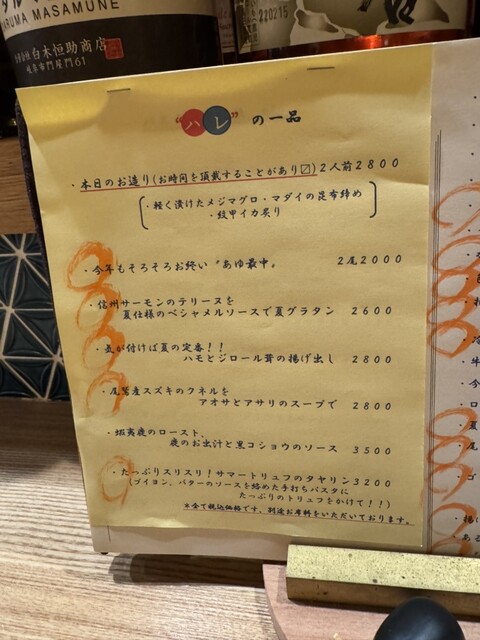 ARUMA MASAMUNE
白木恒助商店
岐阜市門屋門61
220215
“ハレ”の一品
・本日のお造り(お時間を頂戴することがあり〼)2人前2800
・軽く漬けたメジマグロ・マダイの昆布締め
・紋甲イカ炙り
・今年もそろそろお終い〝あゆ最中〟 2尾2000
・信州サーモンのテリーヌを
夏仕様のベシャメルソースで夏グラタン 2600
・気が付けば夏の定番!!
ハモとジロール茸の揚げ出し 2800
・尾鷲産スズキのクネルを
アオサとアサリのスープで 2800
・蝦夷鹿のロースト、
鹿のお出汁と黒コショウのソース 3500
・たっぷりスリスリ!サマートリュフのタヤリン3200
(ブイヨン、バターのソースを絡めた手打ちパスタに
たっぷりのトリュフをかけて!!)
※全て税込価格です。別途お席料をいただいております。